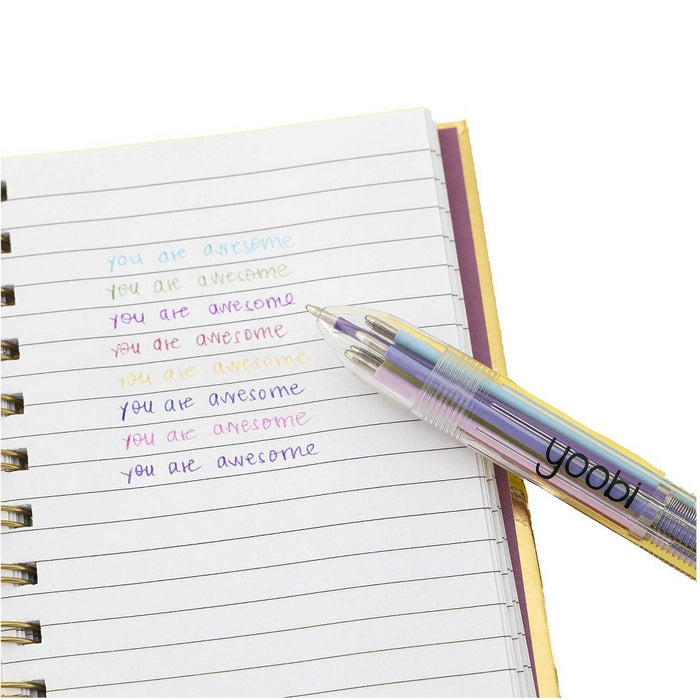 you are awesome
you are awesome
you are awesome
you are awesome
you are awesome
you are awesome
you are awesome
you are awesome
yoobi